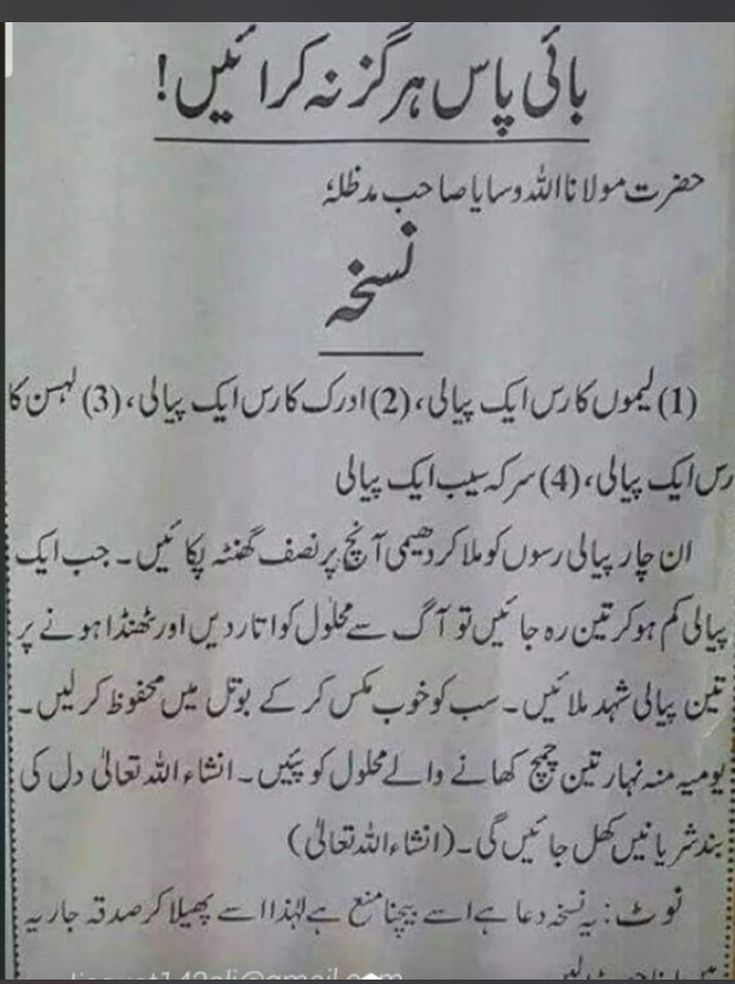 بائی پاس ہرگز نہ کرائیں!
حضرت مولانا اللہ وسایا صاحب مدظلہٗ
نسخہ
(1) لیموں کا رس ایک پیالی، (2) ادرک کا رس ایک پیالی، (3) لہسن کا
رس ایک پیالی، (4) سرکہ سیب ایک پیالی
ان چار پیالی رسوں کو ملا کر دھیمی آنچ پر نصف گھنٹہ پکائیں۔ جب ایک
پیالی کم ہو کر تین رہ جائیں تو آگ سے محلول کو اتار دیں اور ٹھنڈا ہونے پر
تین پیالی شہد ملائیں۔ سب کو خوب مکس کر کے بوتل میں محفوظ کر لیں۔
یومیہ منہ نہار تین چمچ کھانے والے محلول کو پئیں۔ انشاء اللہ تعالیٰ دل کی
بند شریانیں کھل جائیں گی۔ (انشاء اللہ تعالیٰ)
نوٹ: یہ نسخہ دعا ہے اسے بیچنا منع ہے لہٰذا اسے پھیلا کر صدقہ جاریہ